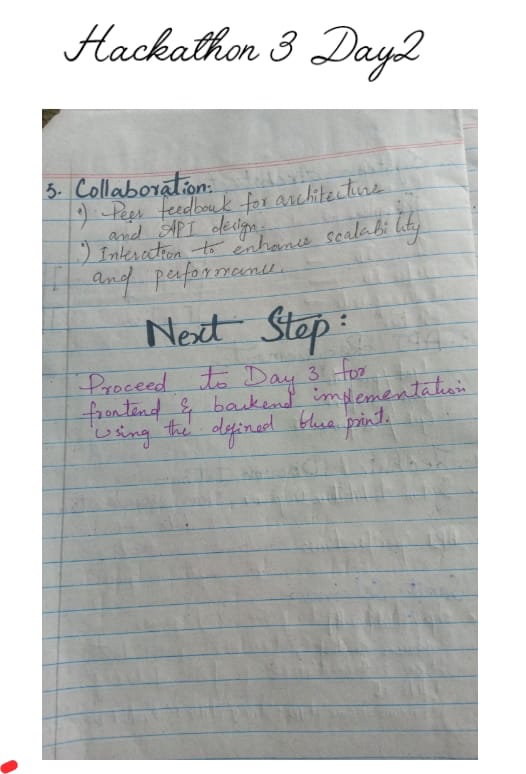 Hackathon 3 Day2
5. Collaboration:
•) Peer feedback for architecture
and API design.
•) Interaction to enhance scalability
and performance.
Next Step:
Proceed to Day 3 for
frontend & backend implementation
using the defined blue print.